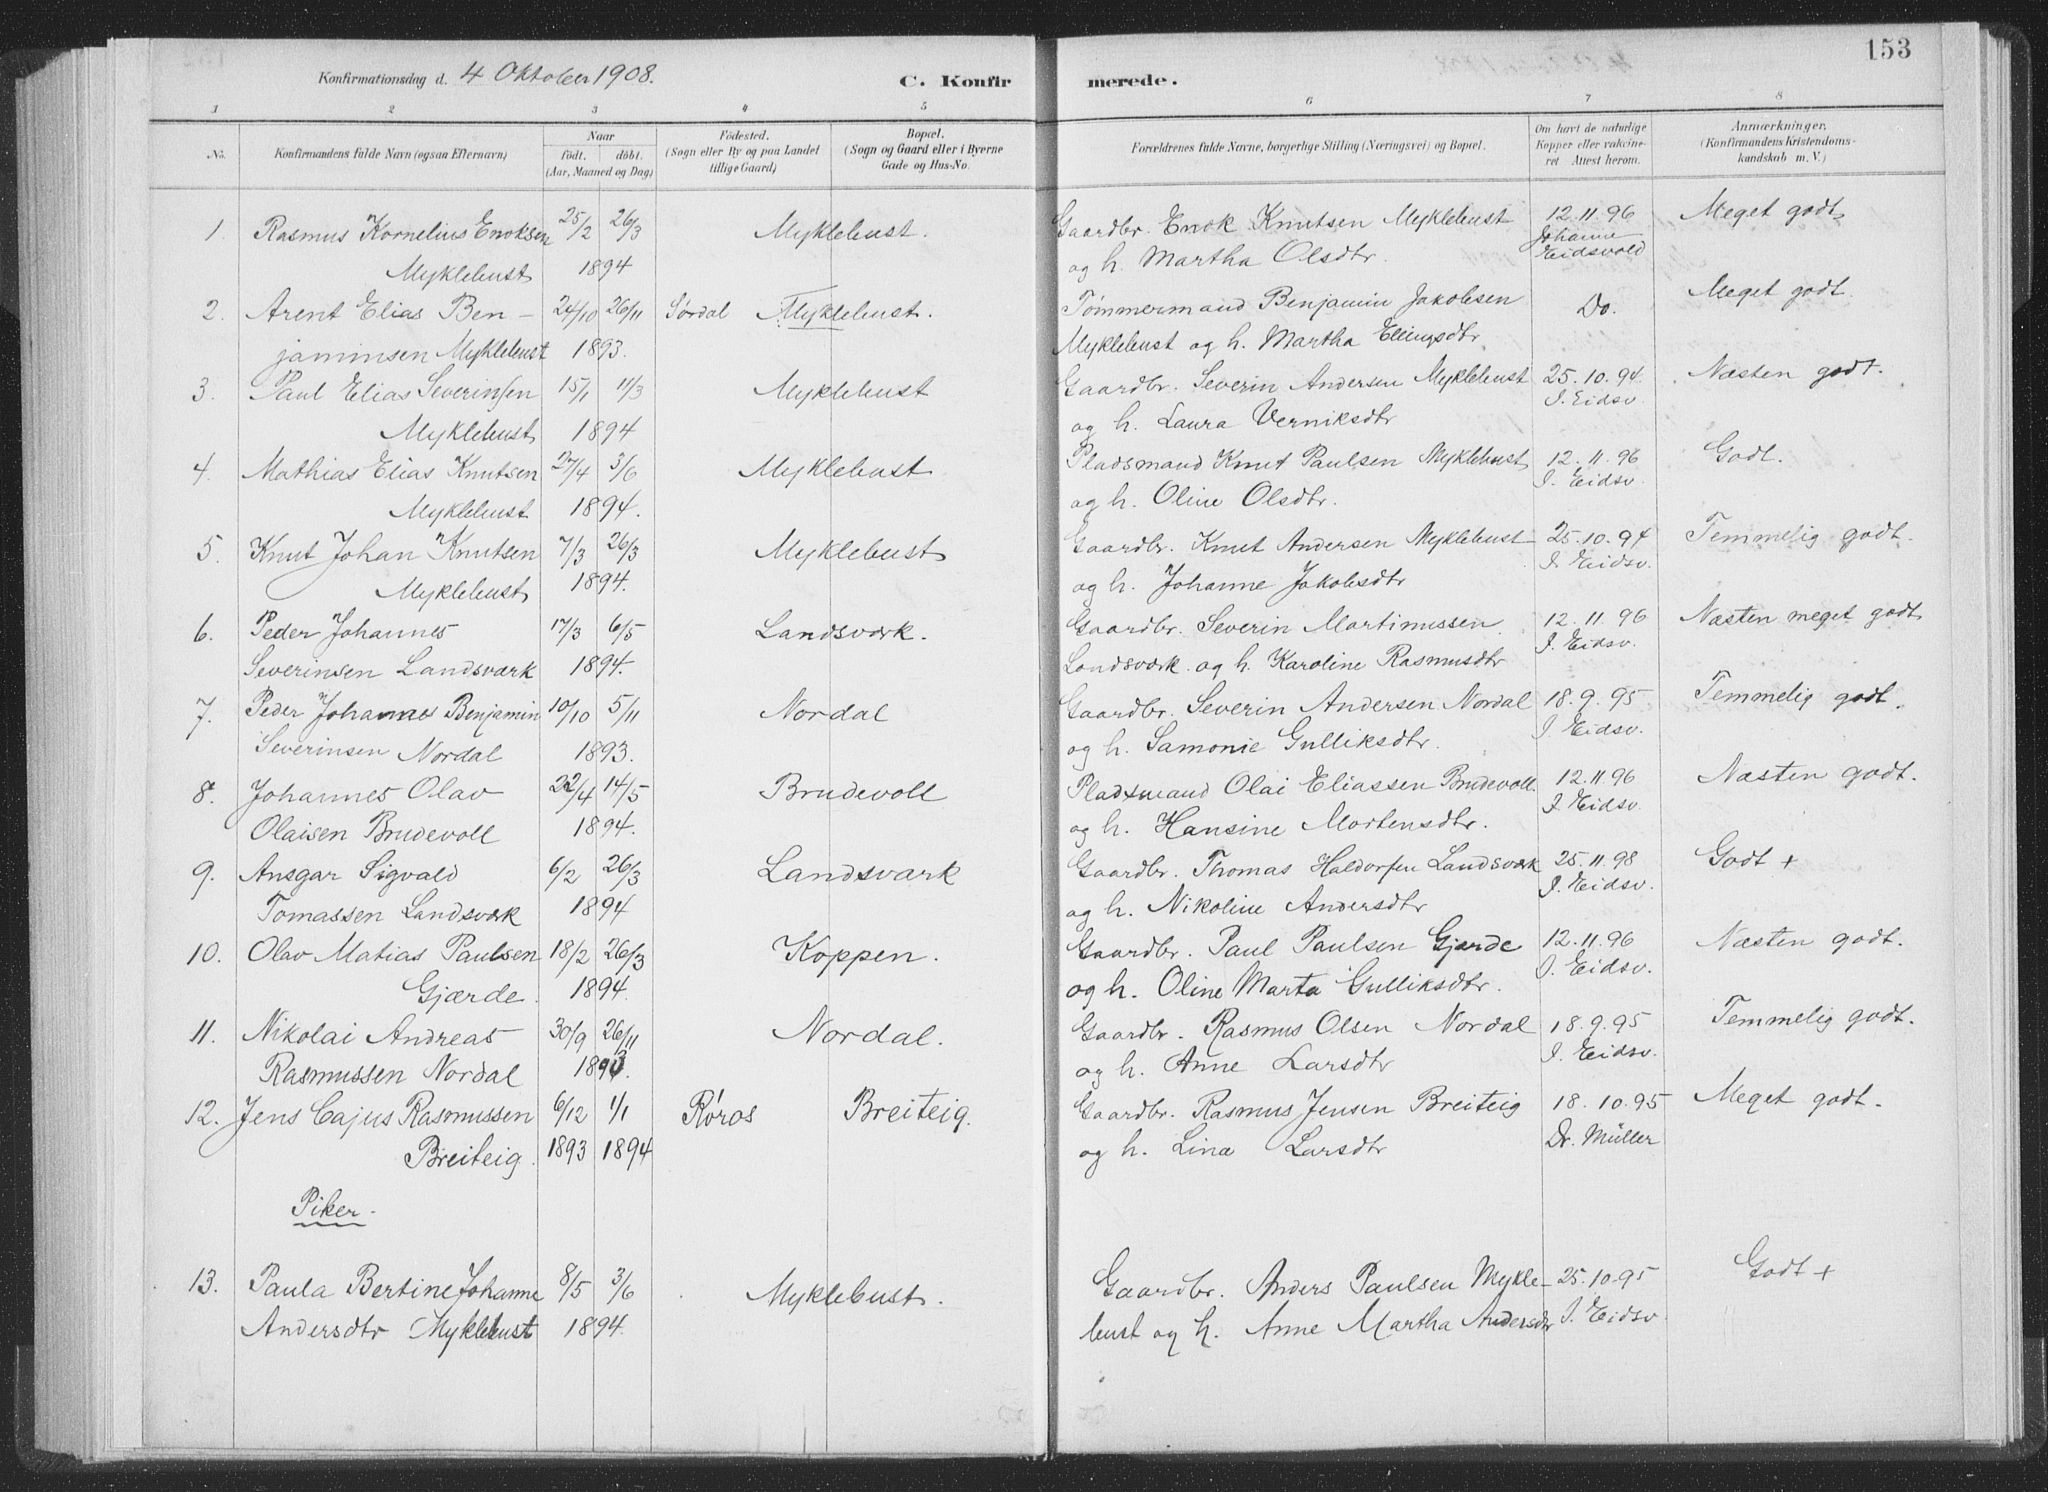 153
Konfirmationsdag d. 4 Oktober 1908.
C. Konfirmerede.
1 2 3 4 5 6 7 8
No.
Konfirmandens fulde Navn (ogsaa Efternavn)
Naar
födt. döbt.
(Aar, Maaned og Dag)
Födested.
(Sogn eller By og paa Landet
tillige Gaard)
Bopæl.
(Sogn og Gaard eller i Byerne
Gade og Hus-No.
Forældrenes fulde Navne, borgerlige Stilling (Næringsvei) og Bopæl.
Om havt de naturlige
Kopper eller vaccine-
ret Attest herom.
Anmærkninger.
(Konfirmandens Kristendoms-
kundskab m. V.)
1. Rasmus Kornelius Enoksen 25/2 26/3 Myklebust. Gaardbr. Enok Knutsen Myklebust 12.11.96 Meget godt
Myklebust 1894 og h. Martha Olsdtr. Johanne Eidsvold
2. Arent Elias Ben- 24/10 26/11 Sørdal Myklebust. Tømmermand Benjamin Jakobsen Do. Meget godt.
jaminsen Myklebust 1893. Myklebust og h. Martha Ellingsdtr
3. Paul Elias Severinsen 15/1 11/3 Myklebust Gaardbr. Severin Andersen Myklebust 25.10.94. Næsten godt.
Myklebust 1894 og h. Laura Verniksdtr J. Eidsv.
4. Mathias Elias Knutsen 27/4 3/6 Myklebust Pladsmand Knut Paulsen Myklebust 12.11.96 Godt.
Myklebust 1894. og h. Oline Olsdtr. J. Eidsv.
5. Knut Johan Knutsen 7/3 26/3 Myklebust Gaardbr. Knut Andersen Myklebust 25.10.94 Temmelig godt.
Myklebust 1894. og h. Johanne Jakobsdtr J. Eidsv.
6. Peder Johannes 17/3 6/5 Landsværk. Gaardbr. Severin Martinussen 12.11.96 Næsten meget godt
Severinsen Landsværk 1894. Landsværk og h. Karoline Rasmusdtr J. Eidsv.
7. Peder Johannes Benjamin 10/10 5/11 Nordal Gaardbr. Severin Andersen Nordal 18.9.95 Temmelig godt.
Severinsen Nordal 1893. og h. Samonie Gulliksdtr. J. Eidsv.
8. Johannes Olav 22/4 14/5 Brudevoll Pladsmand Olai Eliassen Brudevoll. 12.11.96 Næsten godt.
Olaisen Brudevoll 1894. og h. Hansine Mortensdtr. J. Eidsv.
9. Ansgar Sigvald 6/2 26/3 Landsværk Gaardbr. Thomas Haldorsen Landsværk 25.11.98 Godt +
Tomassen Landsværk 1894 og h. Nikoline Andersdtr J. Eidsv.
10. Olav Matias Paulsen 18/2 26/3 Koppen. Gaardbr. Paul Paulsen Gjærde 12.11.96 Næsten godt.
Gjærde. 1894. og h. Oline Marta Gulliksdtr. J. Eidsv.
11. Nikolai Andreas 30/9 26/11 Nordal. Gaardbr. Rasmus Olsen Nordal 18.9.95 Temmelig godt.
Rasmussen Nordal 1893. og h. Anne Larsdtr J. Eidsv.
12. Jens Cajus Rasmussen 6/12 1/1 Røros Breiteig. Gaardbr. Rasmus Jensen Breiteig 18.10.95 Meget godt.
Breiteig. 1893 1894 og h. Lina Larsdtr Dr. Müller
Piker.
13. Paula Bertine Johanne 8/5 3/6 Myklebust. Gaardbr. Anders Paulsen Mykle- 25.10.95 Godt +
Andersdtr Myklebust 1894. bust og h. Anne Martha Andersdtr J. Eidsv.